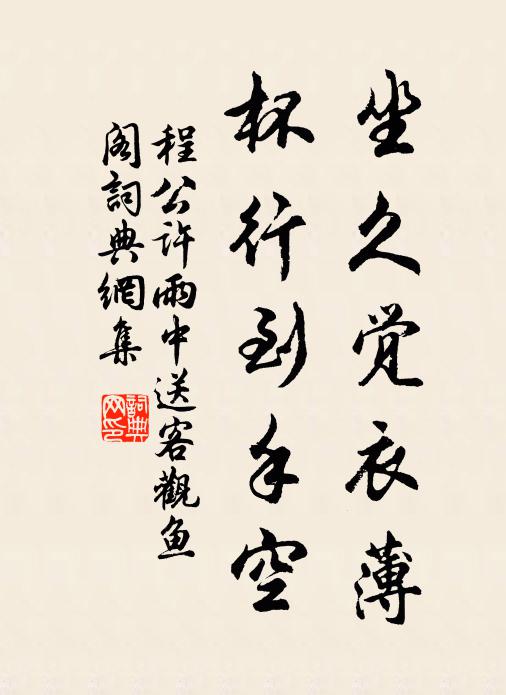 坐久觉衣薄
杯行到手空
程公许雨中送客觀鱼
阁詞典網集
詞典网印